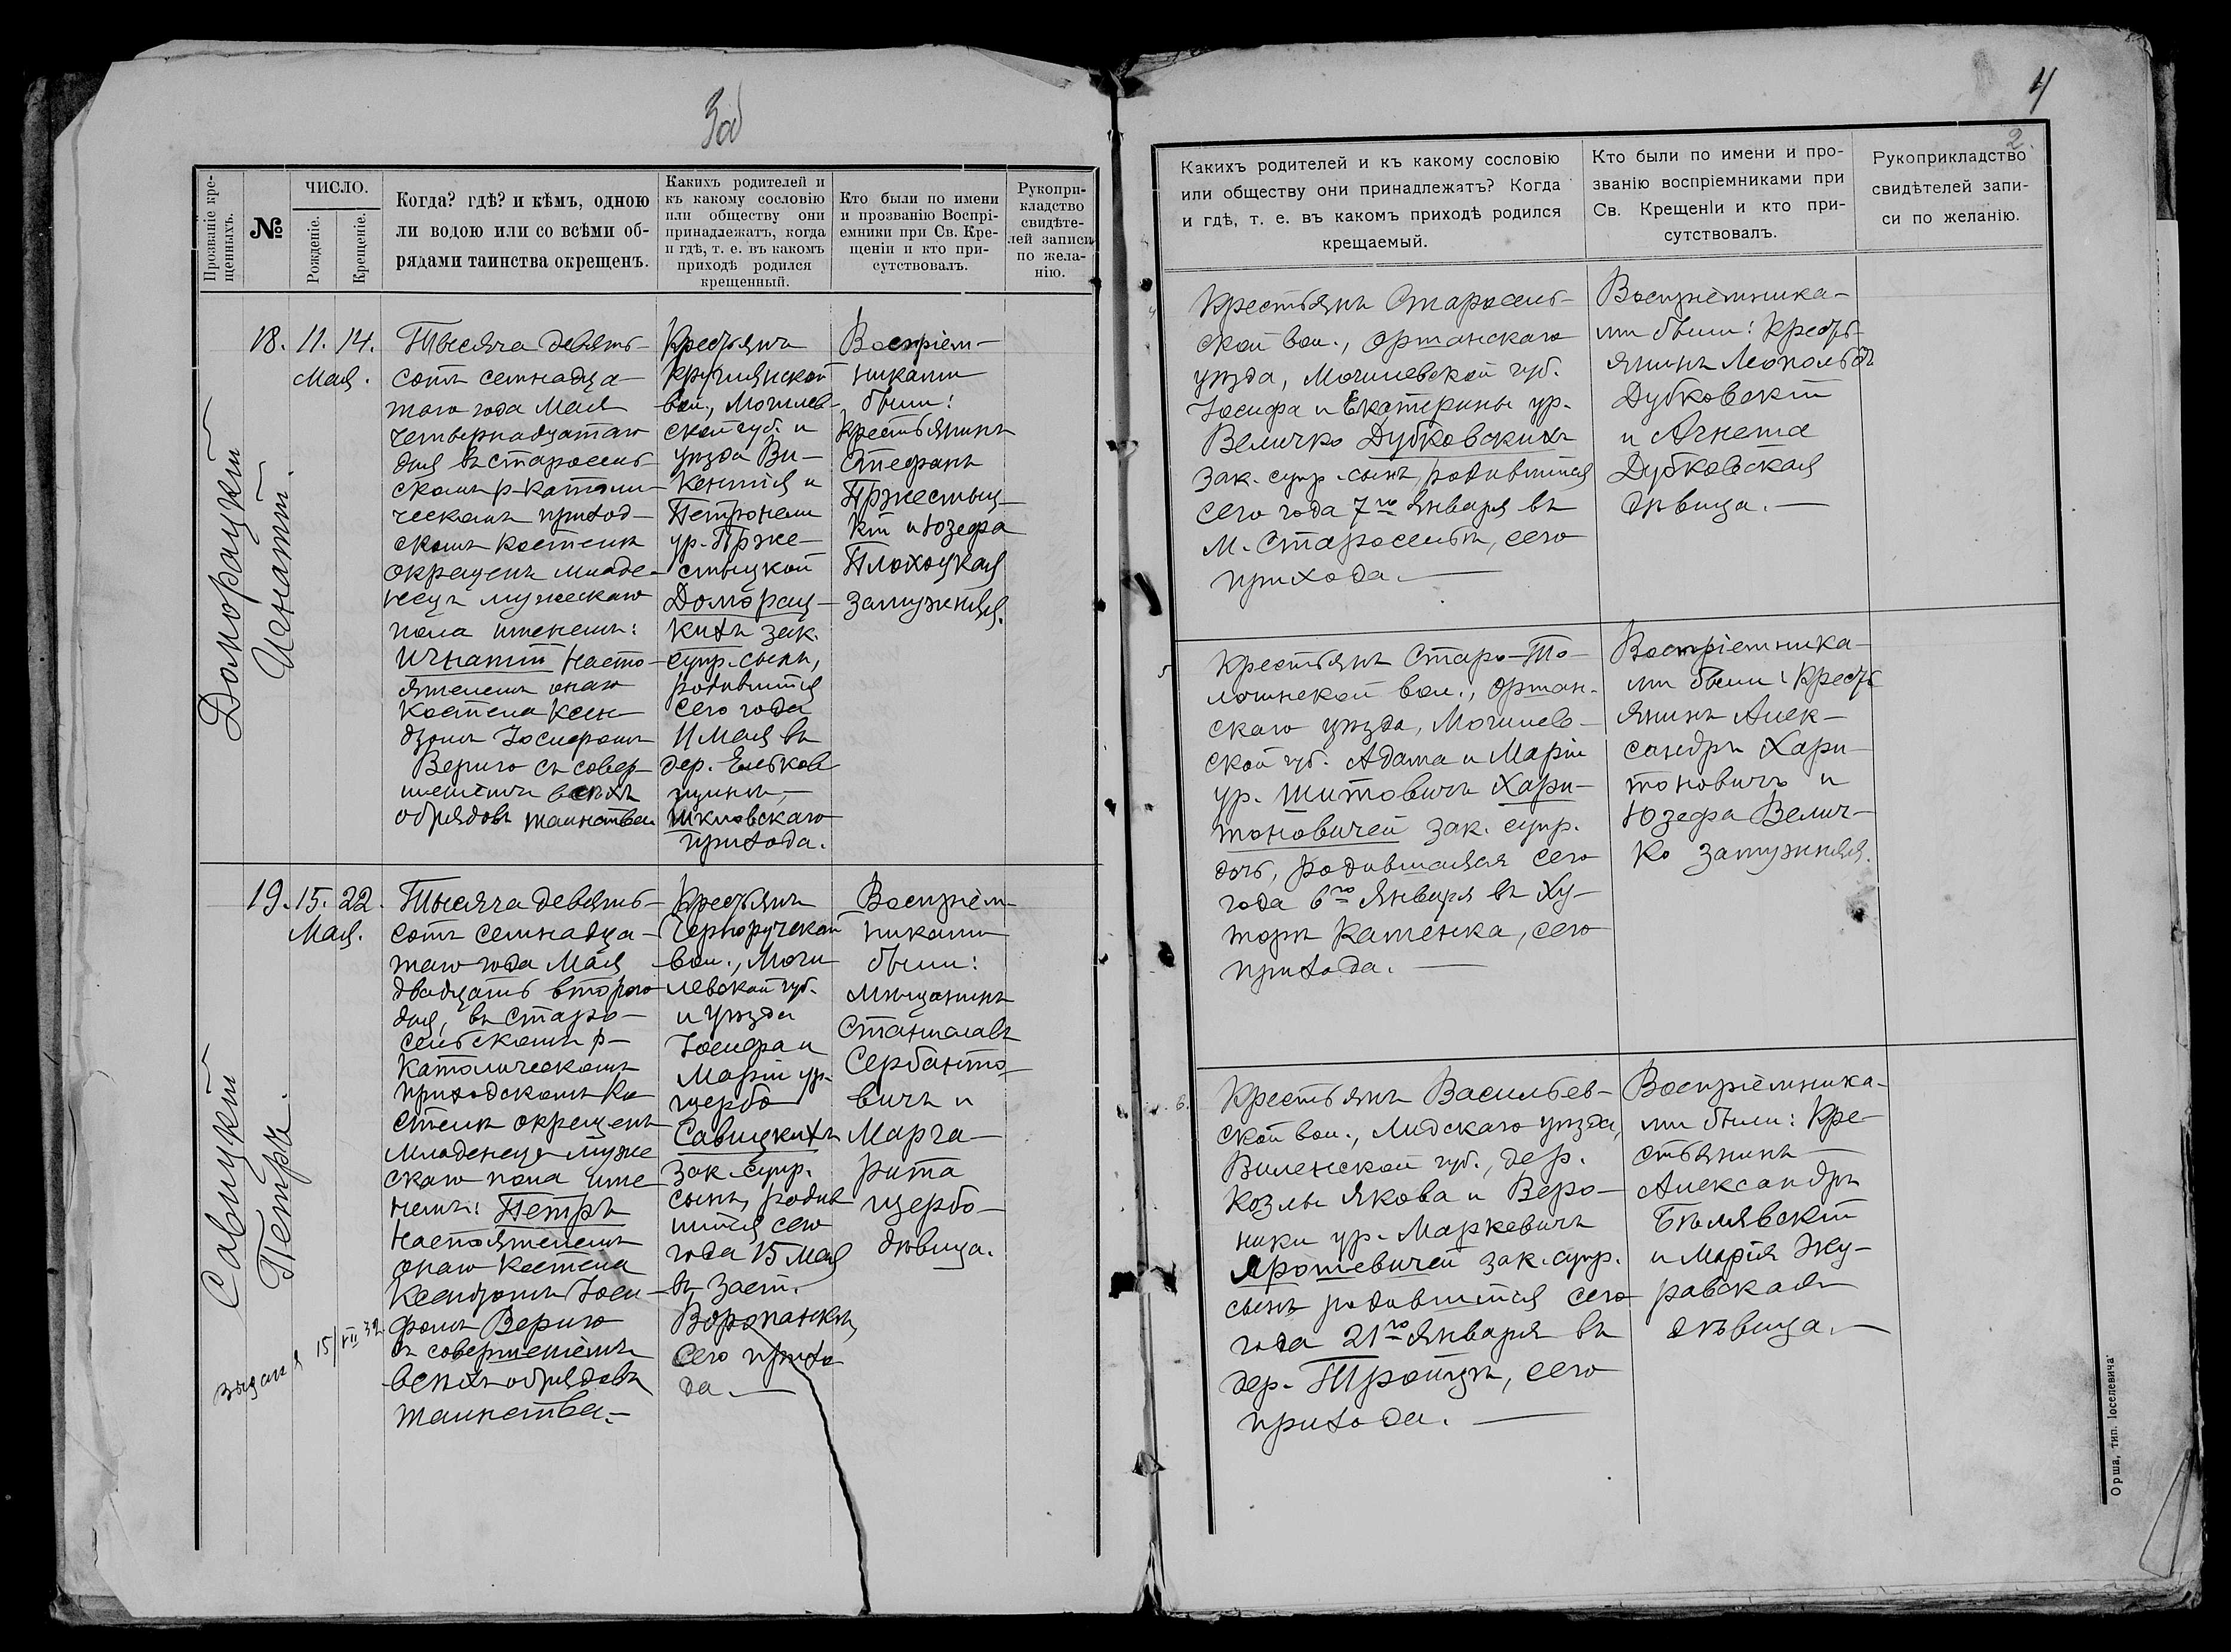 3об
Прозваніе кре-
щенныхъ.
№
ЧИСЛО.
Рожденіе.
Крещеніе.
Когда? гдѣ? и кѣмъ, одною
ли водою или со всѣми об-
рядами таинства окрещенъ.
Какихъ родителей и
къ какому сословію
или обществу они
принадлежатъ, когда
и гдѣ, т. е. въ какомъ
приходѣ родился
крещенный.
Кто были по имени
и прозванію Воспрі-
емники при Св. Кре-
щеніи и кто при-
сутствовалъ.
Рукопри-
кладство
свидѣте-
лей записи
по жела-
нію.
Доморацкій
Игнатій.
18. 11. 14.
Мая.
Тысяча девять-
сотъ семнадца-
таго года Мая
четырнадцатаго
дня въ старосель-
скомъ р-католи-
ческомъ приход-
скомъ костелѣ
окрещенъ младе-
нецъ мужескаго
пола именемъ:
Игнатій насто-
ятелемъ онаго
костела ксен-
дзомъ Іосифомъ
Вериго съ совер-
шеніемъ всѣхъ
обрядовъ таинства
Крестьянъ
Круглянской
вол., Могилев-
ской губ. и
уѣзда Ви-
кентія и
Петронели
ур. Прже-
стыцкой
Доморац-
кихъ зак.
супр. сынъ,
родившійся
сего года
11 Мая въ
дер. Ельков-
щинѣ,-
Шкловскаго
прихода.
Воспріем-
никами
были:
Крестьянинъ
Стефанъ
Пржестыц-
кій и Юзефа
Плохоцкая
замужняя.
Савицкій
Петръ.
19. 15. 22.
Мая.
Тысяча девять-
сотъ семнадца-
таго года Мая
двадцать второго
дня, въ старо-
сельскомъ р-
католическомъ
приходскомъ ко-
стелѣ окрещенъ
младенецъ муже
скаго пола име
немъ: Петръ
настоятелемъ
онаго костела
ксендзомъ Іоси-
фомъ Вериго
съ совершеніемъ
всѣхъ обрядовъ
таинства.-
Крестьянъ
Черноручской
вол., Моги
левской губ.
и уѣзда
Іосифа и
Маріи ур.
щербо
Савицкихъ
зак. супр.
сынъ, родив
шійся сего
года 15 Мая
въ заст.
Воропанкѣ,
сего прихо-
да.-
Воспріем-
никами
были:
мѣщанинъ
Станиславъ
Сербанто-
вичъ и
Марга-
рита
щербо-
дѣвица.
15/VII 32
4
2.
Какихъ родителей и къ какому сословію
или обществу они принадлежатъ? Когда
и гдѣ, т. е. въ какомъ приходѣ родился
крещаемый.
Кто были по имени и про-
званію воспріемниками при
Св. Крещеніи и кто при-
сутствовалъ.
Рукоприкладство
свидѣтелей запи-
си по желанію.
4
Крестьянъ Старосель-
ской вол., Оршанскаго
уѣзда, Могилевской губ.
Іосифа и Екатерины ур.
Величко Дубковскихъ
зак. супр. сынъ, родившійся
сего года 7го Января въ
м. Старосельѣ, сего
прихода.-
Воспріемника-
ми были: Кресть
янинъ Леопольдъ
Дубковскій
и Агнета
Дубковская
дѣвица.-
5
Крестьянъ Старо-То-
лочинской вол., Оршан-
скаго уѣзда, Могилев-
ской губ. Адама и Маріи
ур. Шитовичъ Хари-
тоновичей зак. супр.
дочь, родившаяся сего
года 6го Января въ Ху-
торѣ Каменка, сего
прихода.-
Воспріемника-
ми были: Кресть
янинъ Алек-
сандръ Хари-
тоновичъ и
Юзефа Велич-
ко замужняя.
6.
Крестьянъ Васильев-
ской вол., Лидскаго уѣзда,
Виленской губ., дер.
Козлы Якова и Веро-
ники ур. Маркевичъ
Ярошевичей зак. супр.
сынъ родившійся сего
года 21го Января въ
дер. Тройцѣ, сего
прихода.-
Воспріемника-
ми были: Кре-
стьянинъ
Александръ
Бѣлявскій
и Марія Жу-
равская
дѣвица.-
Орша, тип. Іоселевича.